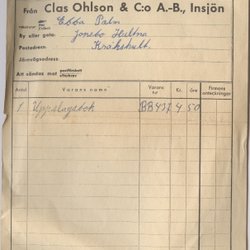 Från Clas Ohlson & C:o A.-B., Insjön
Ebba Palm
By eller gata: Jonsbo Hultna
Postadress: Kråkshult
Järnvägsadress:
Att sändas mot postförskott efterkrav
Antal Varans namn Varans nr Kr. öre Firmans anteckningar
1 Uppslagsbok BB417 4 50